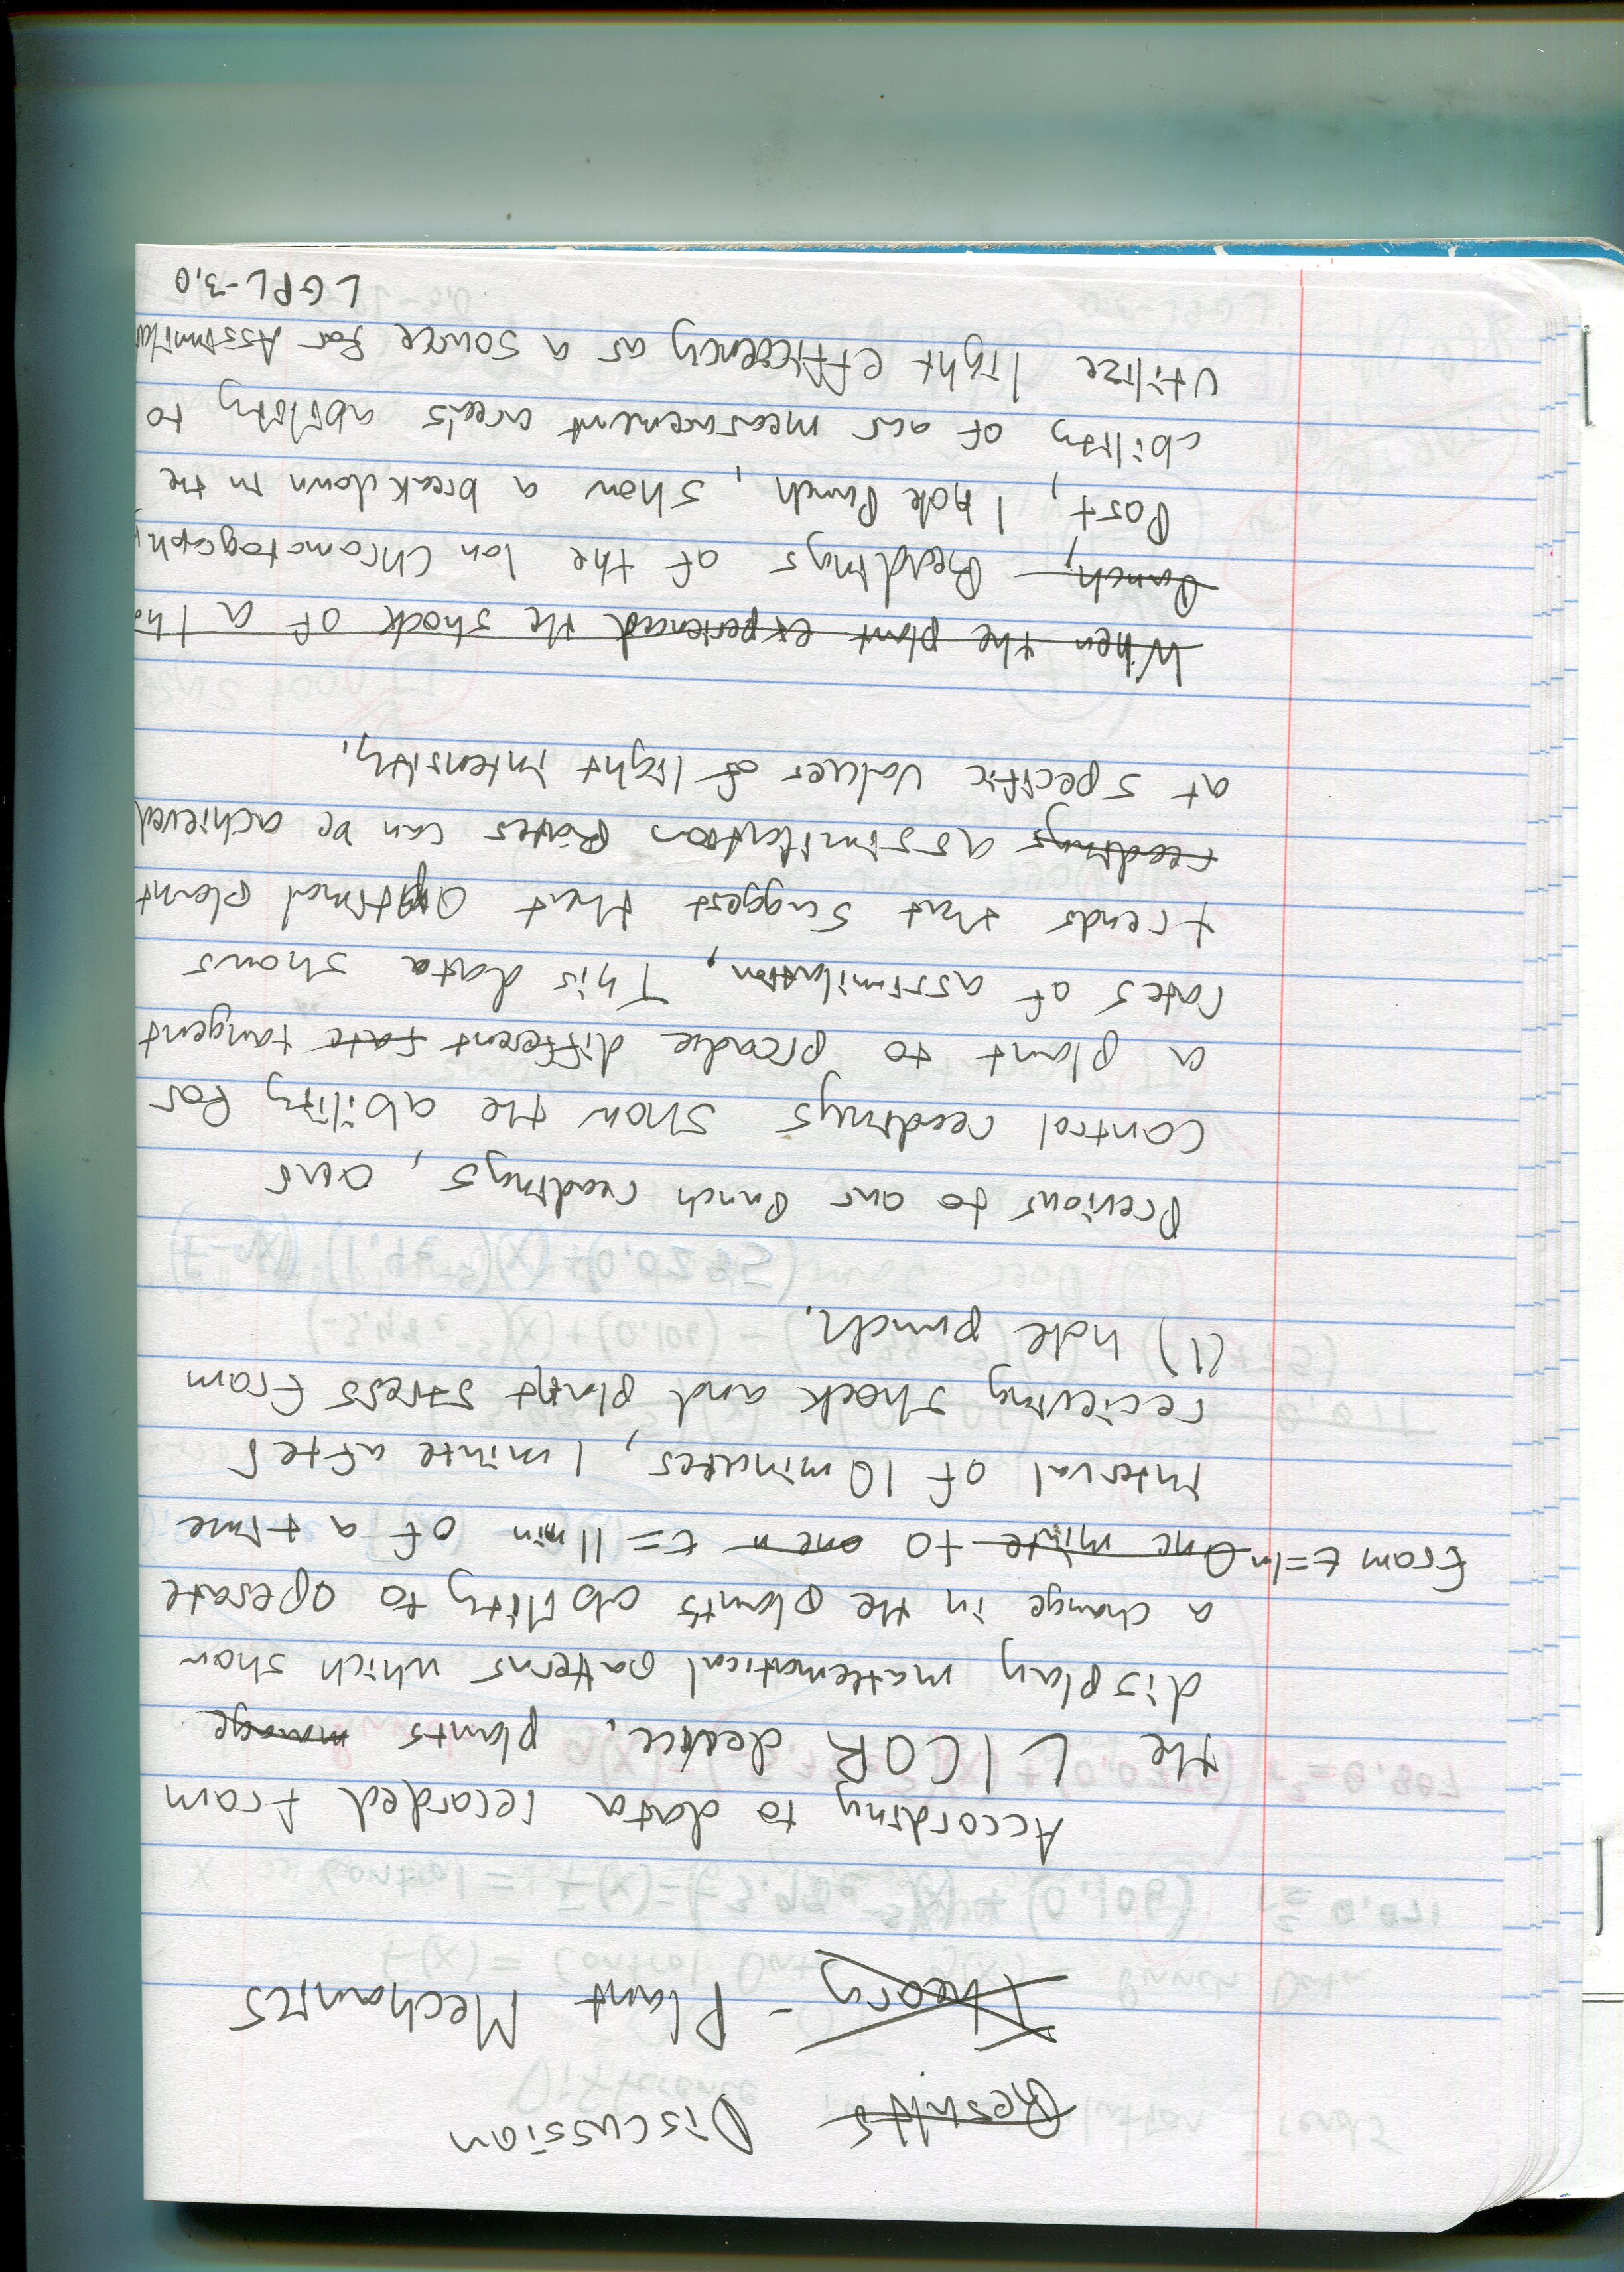 Results Discussion
Theory - Plant Mechanics
According to data recorded from
the LICOR device, plants manage
display mathematical patterns which show
a change in the plants ability to operate
from t=1m One minte to one n t=11min of a time
interval of 10 minutes, 1 minte after
recieving shock and plant stress from
(1) hole punch.
Previous to our Punch readings, our
Control readings show the ability for
a plant to prodie different rate tangent
rates of assimilation, This data shows
trends that suggest that Optimal Plant
readings assimilation Rates can be achieved
at specific values of light intensity.
When the plant experienced the shock of a 1 ho
Punch, Readings of the Ion Chromatography
Post, 1 hole Punch, show a breakdown in the
ability of our measurement area's ability to
Utilize light efficiency as a source for Assimilat
LGPL-3.0